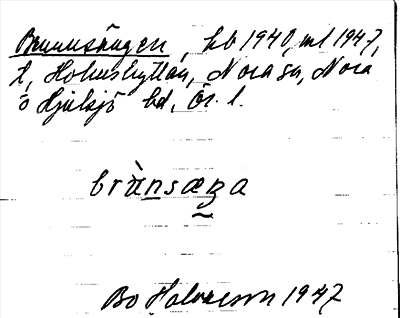 Brunnsängen, hb 1940, ml 1947,
t, Holmshyttan, Nora sn, Nora
o Hjulsjö bd, Ör. l.
brùnsæŋa
Bo Halvarson 1947